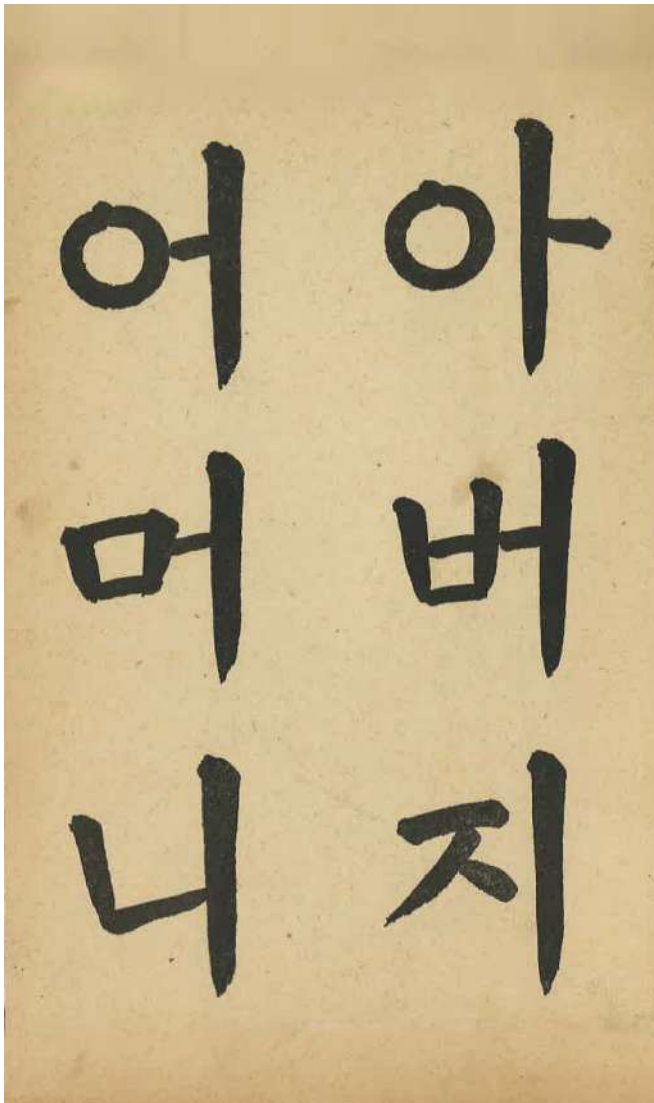 아버지
어머니